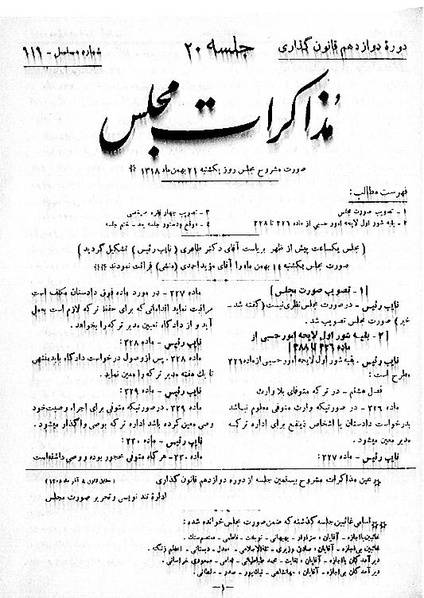 دورهٔ دوازدهم قانون گذاری
جلسه ۲۰
شماره مسلسل - ۱۱۱
مذاکرات مجلس
صورت مشروح مجلس روز یکشنبه ۲۱ بهمن ماه ۱۳۱۸
فهرست مطالب:
۱ - تصویب صورت مجلس
۲ - بقیه شور اول لایحه امور حسبی از ماده ۲۲۶ تا
۳ - تصویب چهار فقره مرخصی
۴ - موقع و دستور جلسه بعد - ختم جلسه
(مجلس یکساعت پیش از ظهر بریاست آقای دکتر طاهری (نایب رئیس) تشکیل گردید)
صورت مجلس یکشنبه ۱۴ بهمن ماه را آقای مؤید احمدی (منشی) قرائت نمودند
[۱ - تصویب صورت مجلس]
نایب رئیس - در صورت مجلس نظری نیست (گفته شد -
خیر) صورت مجلس تصویب شد.
[۲ - بقیه شور اول لایحه امور حسبی از
ماده ۲۲۶ تا]
نایب رئیس - بقیه شور اول لایحه امور حسبی از ماده ۲۲۶
مطرح است:
فصل هشتم - در ترکه متوفای بلا وارث
ماده ۲۲۶ - در صورتیکه وارث متوفی معلوم نباشد
بدرخواست دادستان یا اشخاص ذینفع برای اداره ترکه
مدیر معین میشود.
نایب رئیس - ماده ۲۲۷:
ماده ۲۲۷ - در مورد ماده فوق دادستان مکلف است
مراقبت نماید اقداماتی که برای حفظ ترکه لازم است بعمل
آید و از دادگاه تعیین مدیر ترکه را بخواهد.
نایب رئیس - ماده ۲۲۸:
ماده ۲۲۸ - پس از وصول درخواست دادگاه باید منتهی
تا یک هفته مدیر ترکه را معین نماید.
نایب رئیس - ماده ۲۲۹:
ماده ۲۲۹ - در صورتیکه متوفی برای اجراء وصیت خود
وصی معین کرده باشد اداره ترکه بوصی واگذار میشود.
نایب رئیس - ماده ۲۳۰:
ماده ۲۳۰ - هر گاه متوفی محجور بوده و وصی داشته است
عین مذاکرات مشروح بیستمین جلسه از دوره دوازدهم قانون گذاری
اداره تند نویسی و تحریر صورت مجلس
اسامی غائبین جلسه گذشته که ضمن صورت مجلس خوانده شده:
غائبین با اجازه - آقایان:
غائبین بی اجازه - آقایان:
دیر آمدگان با اجازه - آقایان:
دیر آمدگان بی اجازه - آقایان:
-۱-